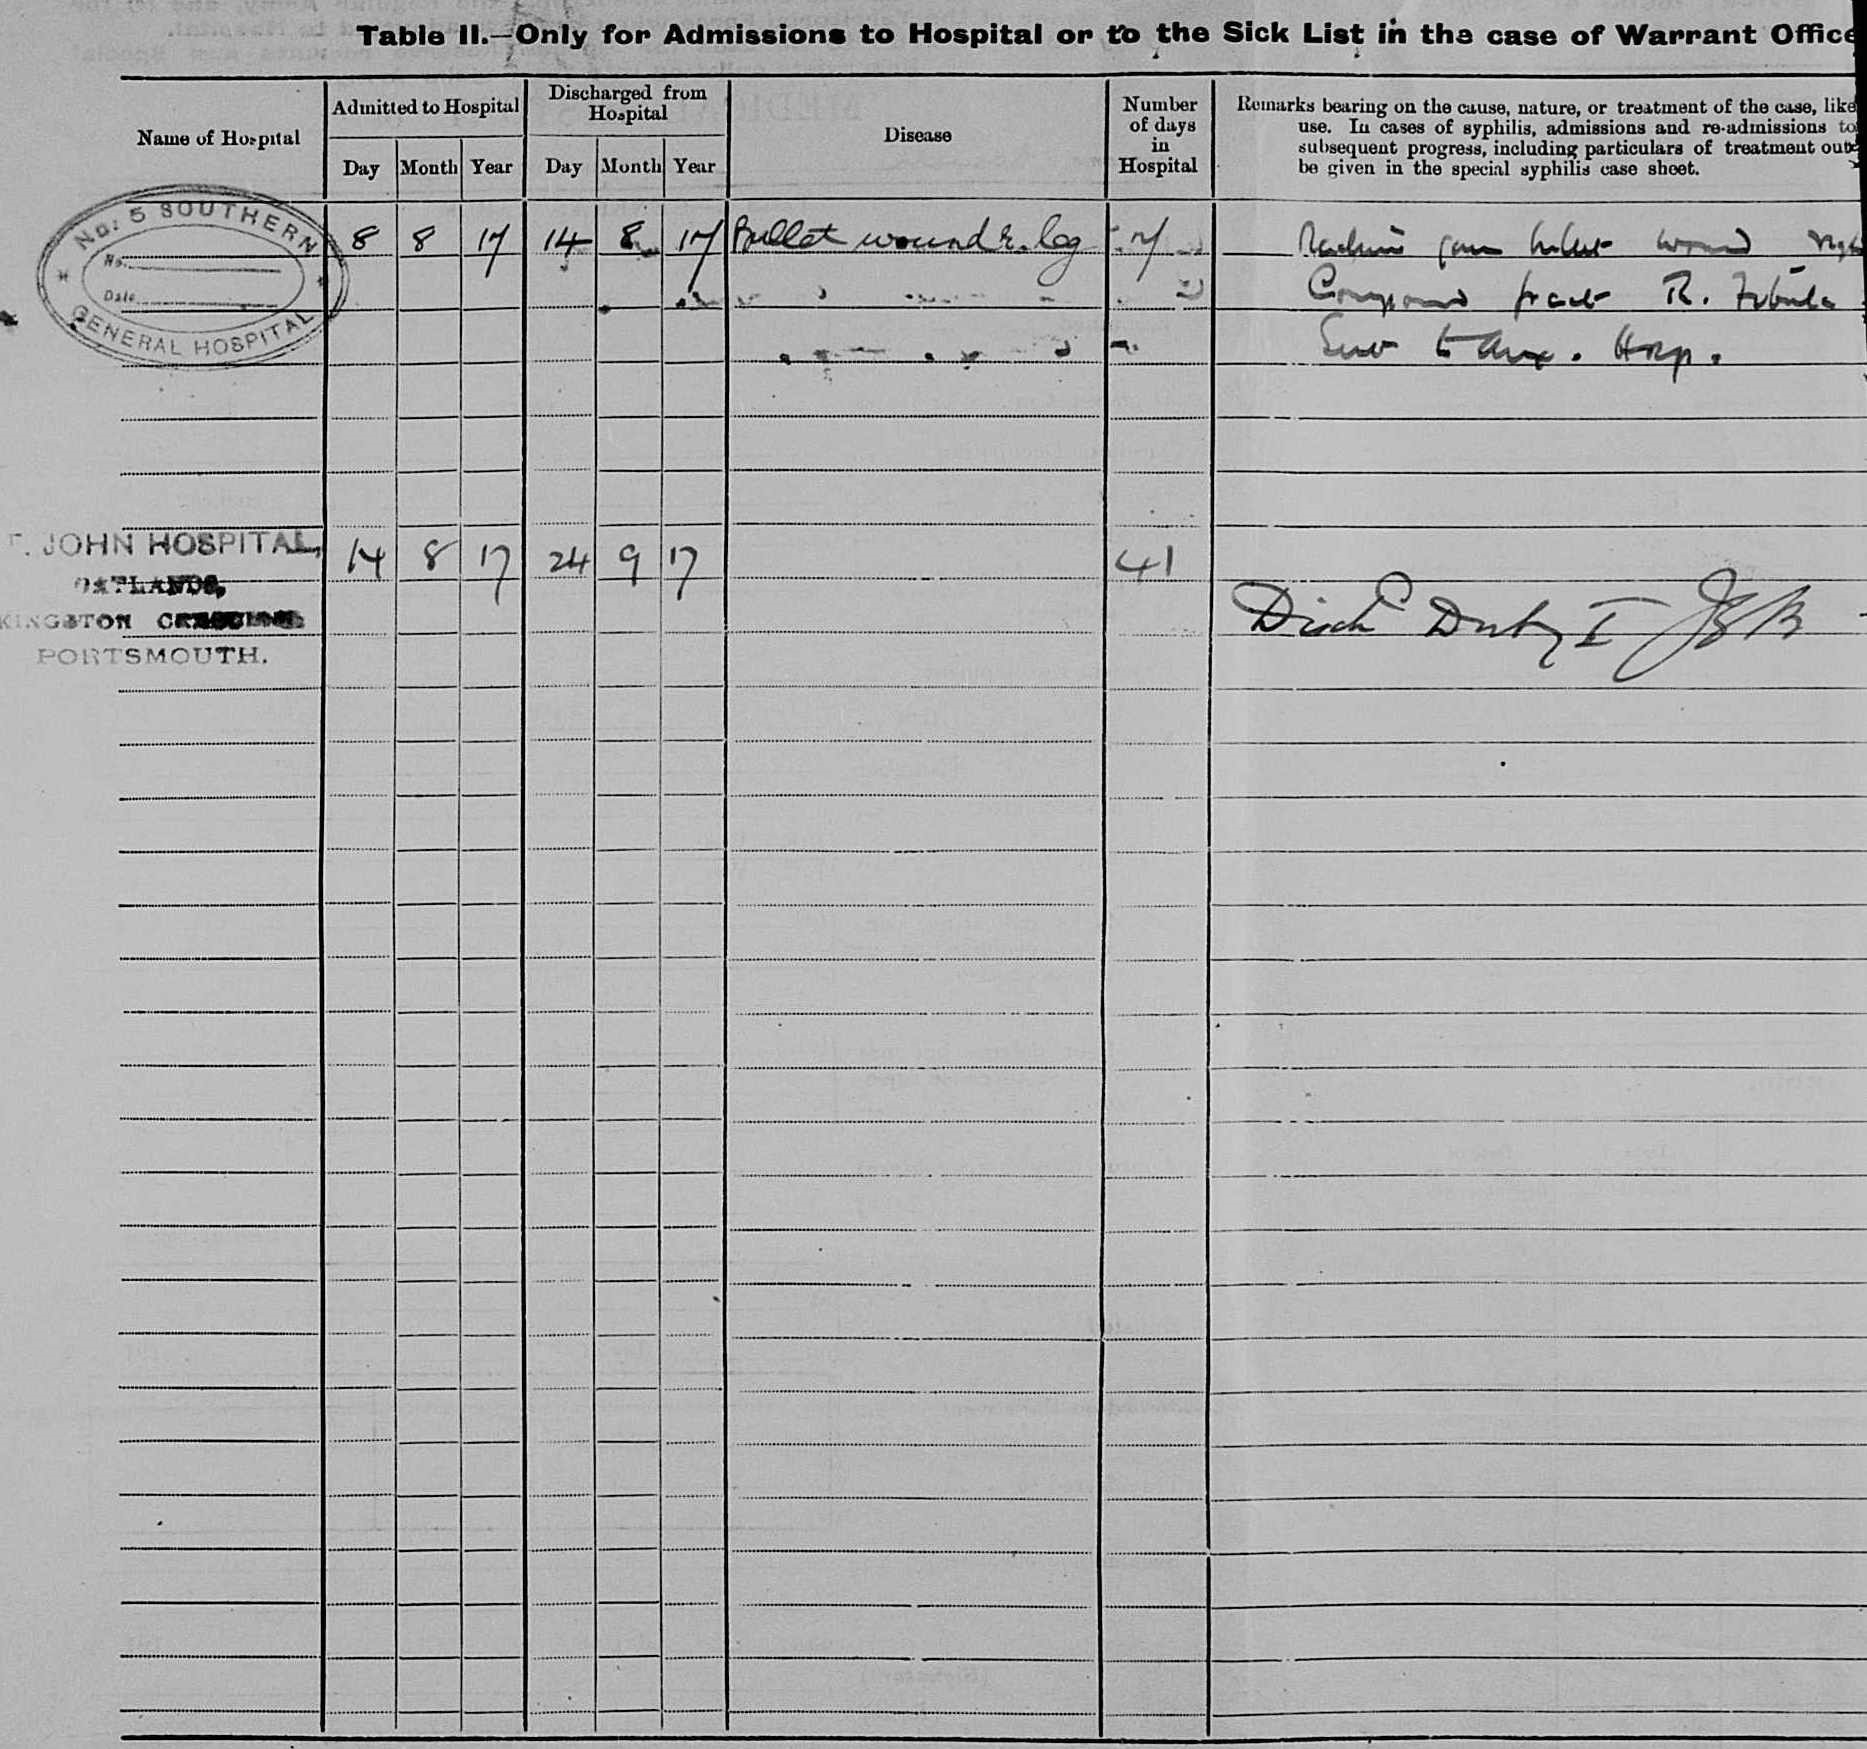 Table II.—Only for Admissions to Hospital or to the Sick List in the case of Warrant Office
Name of Hospital
Admitted to Hospital
Discharged from
Hospital
Disease
Number
of days
in
Hospital
Remarks bearing on the cause, nature, or treatment of the case, like
use. In cases of syphilis, admissions and re-admissions to
subsequent progress, including particulars of treatment out
be given in the special syphilis case sheet.
Day Month Year Day Month Year
No: 5 SOUTHERN
No.
Date
GENERAL HOSPITAL
8 8 17 14 8 17 Bullet wound R. leg 7 Machine gun bullet wound right
Compound fract R. Fibula
Sent to Aux. Hosp.
T. JOHN HOSPITAL, 14 8 17 24 9 17 41
OATLANDS,
KINGSTON
PORTSMOUTH.
Disch Duty I